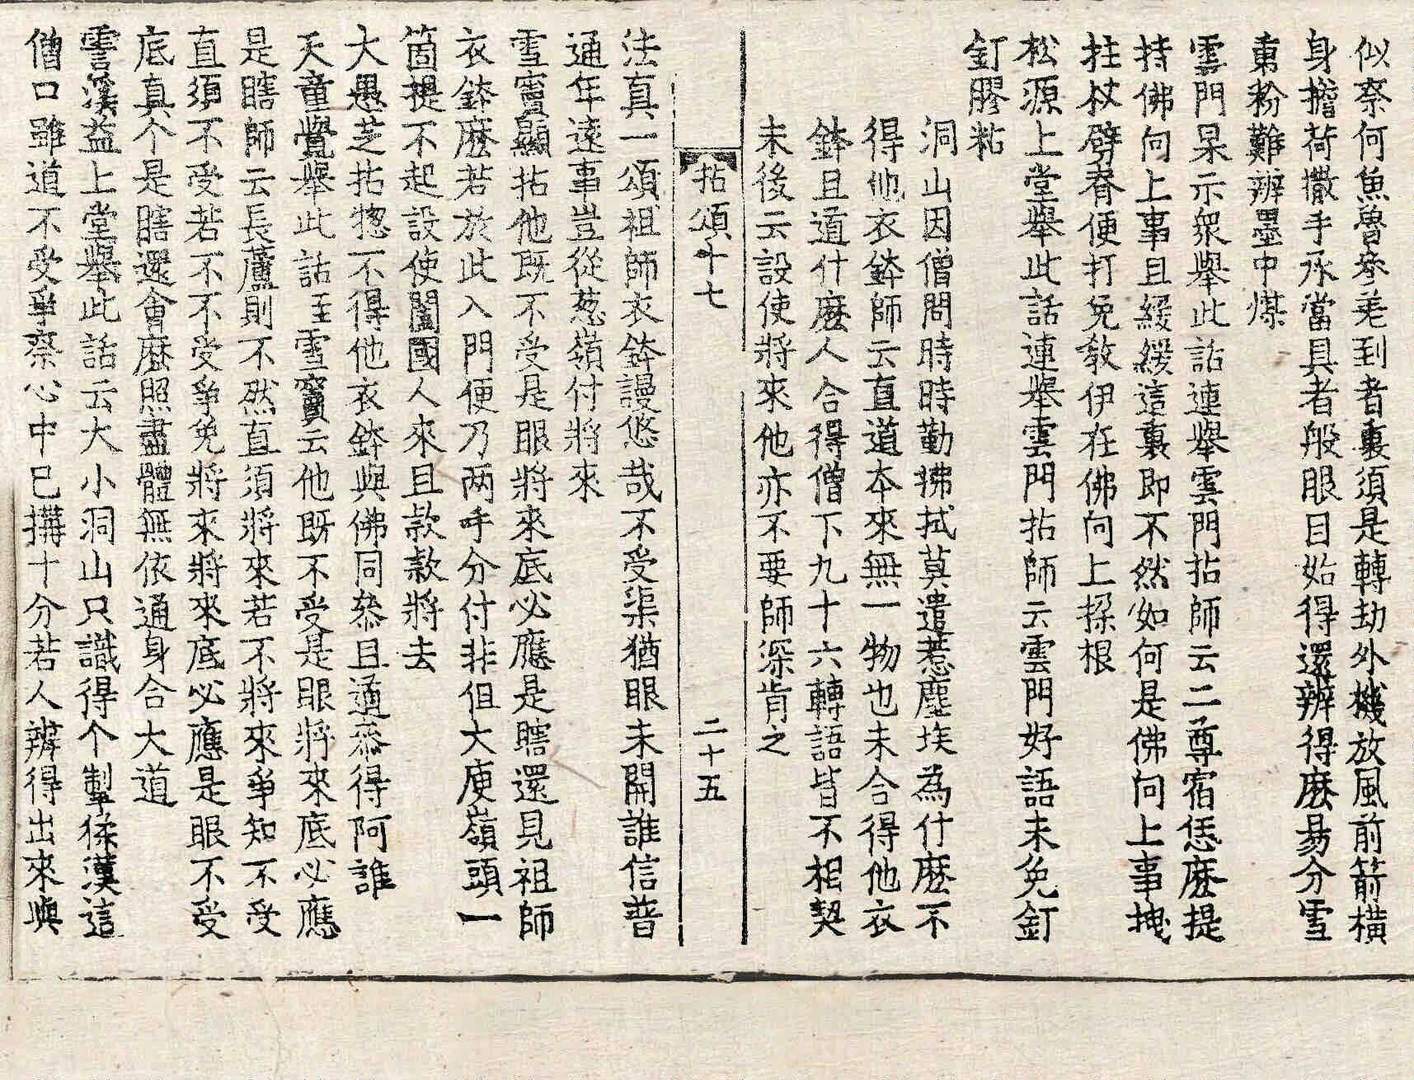 似奈何魚魯參差到者裏須是轉劫外機放風前箭橫
身擔荷撒手承當具者般眼目始得還辨得麽易分雪
裏粉難辨墨中煤
雲門杲示衆舉此話連舉雲門拈師云二尊宿恁麽提
持佛向上事且緩緩這裏即不然如何是佛向上事拽
拄杖劈脊便打免敎伊在佛向上揉根
松源上堂舉此話連舉雲門拈師云雲門好語未免釘
釘膠粘
洞山因僧問時時勤拂拭莫遣惹塵埃為什麽不
得他衣鉢師云直道本來無一物也未合得他衣
鉢且道什麽人合得僧下九十六轉語皆不相契
末後云設使將來他亦不要師深肯之
拈頌十七
二十五
法真一頌祖師衣鉢謾悠哉不受渠猶眼未開誰信普
通年遠事豈從葱嶺付將來
雪竇顯拈他既不受是眼將來底必應是瞎還見祖師
衣鉢麽若於此入門便乃两呼分付非但大庾嶺頭一
箇提不起設使闔國人來且款款將去
大愚芝拈惣不得他衣鉢與佛同叅且道叅得阿誰
天童覺舉此話至雪竇云他既不受是眼將來底必應
是瞎師云長蘆則不然直須將來若不將來爭知不受
直須不受若不不受爭免將來將來底必應是眼不受
底真个是瞎還會麽照盡體無依通身合大道
雪溪益上堂舉此話云大小洞山只識得个掣徕漢這
僧口雖道不受爭奈心中已搆十分若人辨得出來與